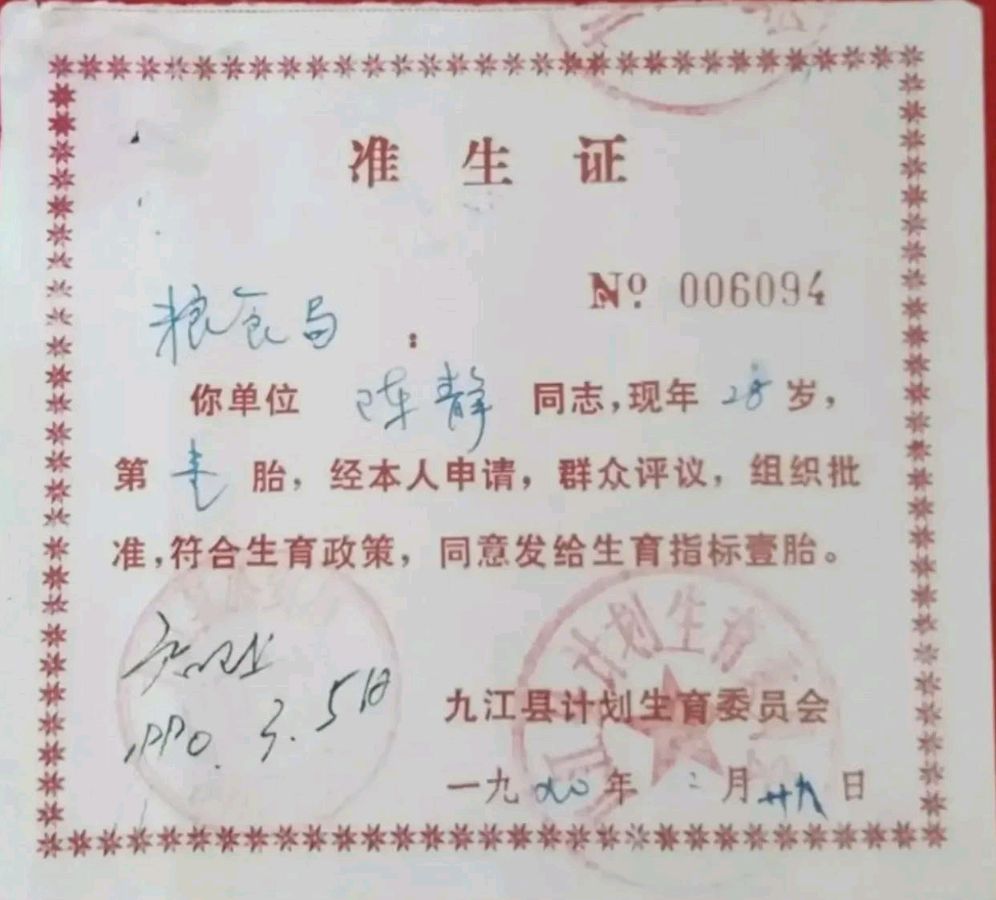 准生证
№ 006094
粮食局：
你单位 陈静 同志，现年 28 岁，
第 壹 胎，经本人申请，群众评议，组织批
准，符合生育政策，同意发给生育指标壹胎。
计划生育
1990. 3. 5日
九江县计划生育委员会
一九九0年 二月 廿九日